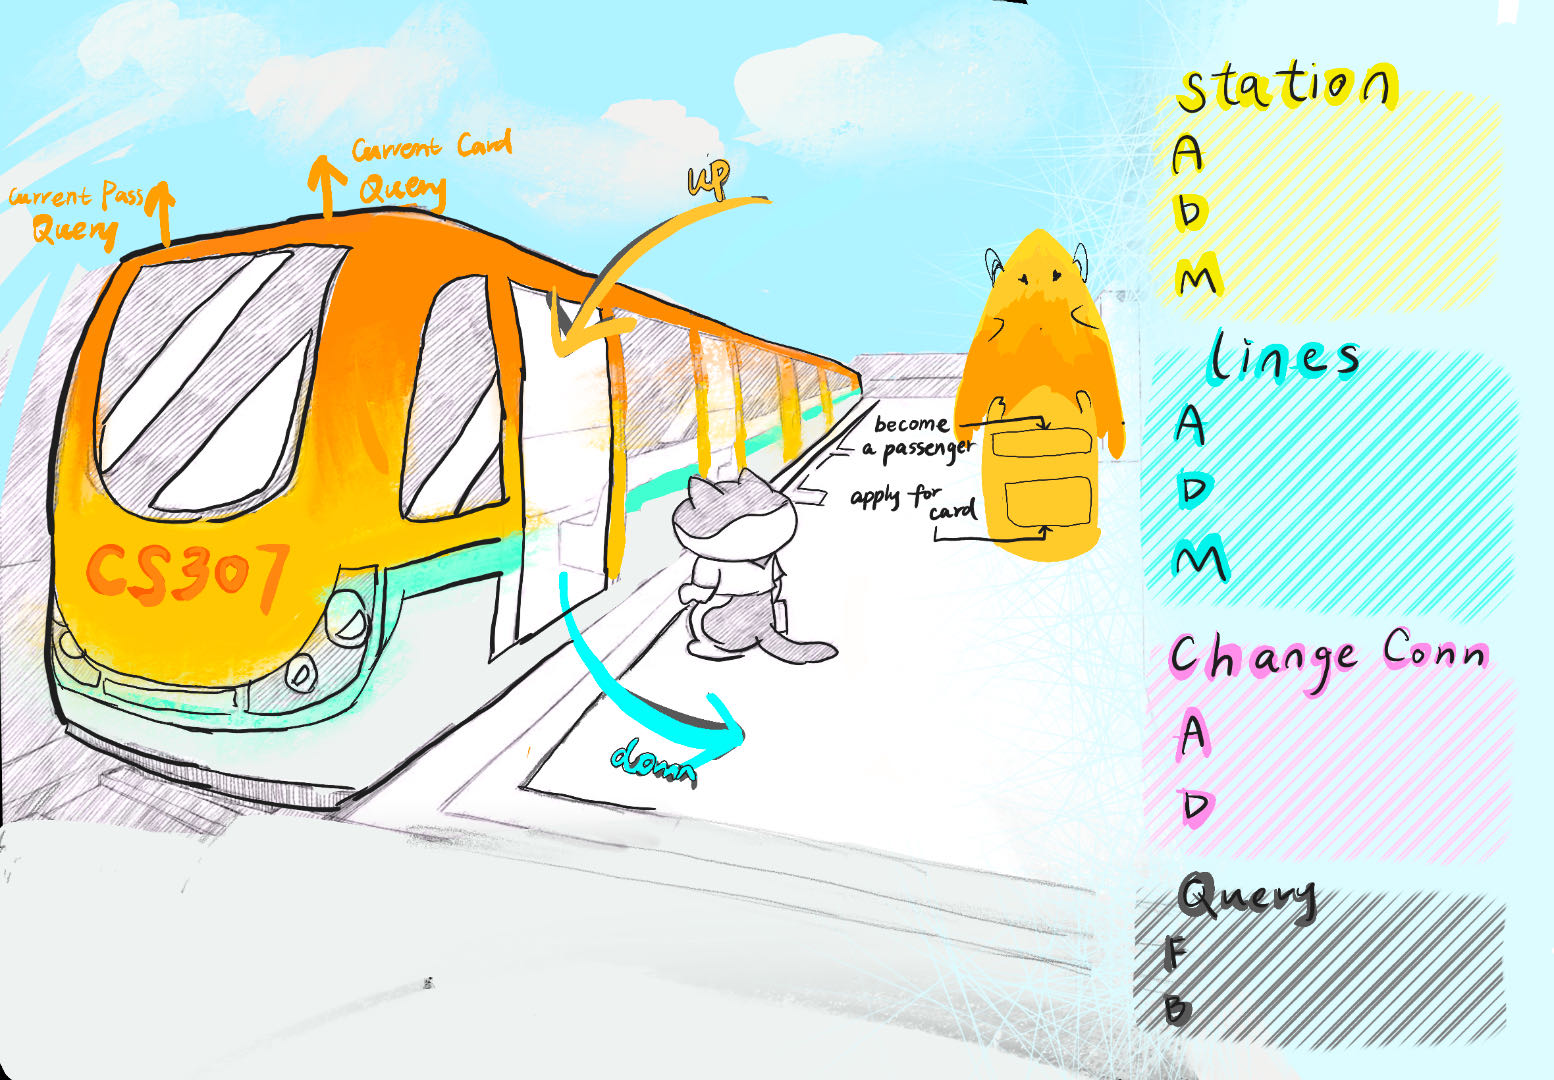 Current Pass
Query
Current Card
Query
up
CS307
down
become
a passenger
apply for
card
station
A
D
M
lines
A
D
M
Change Conn
A
D
Query
F
B